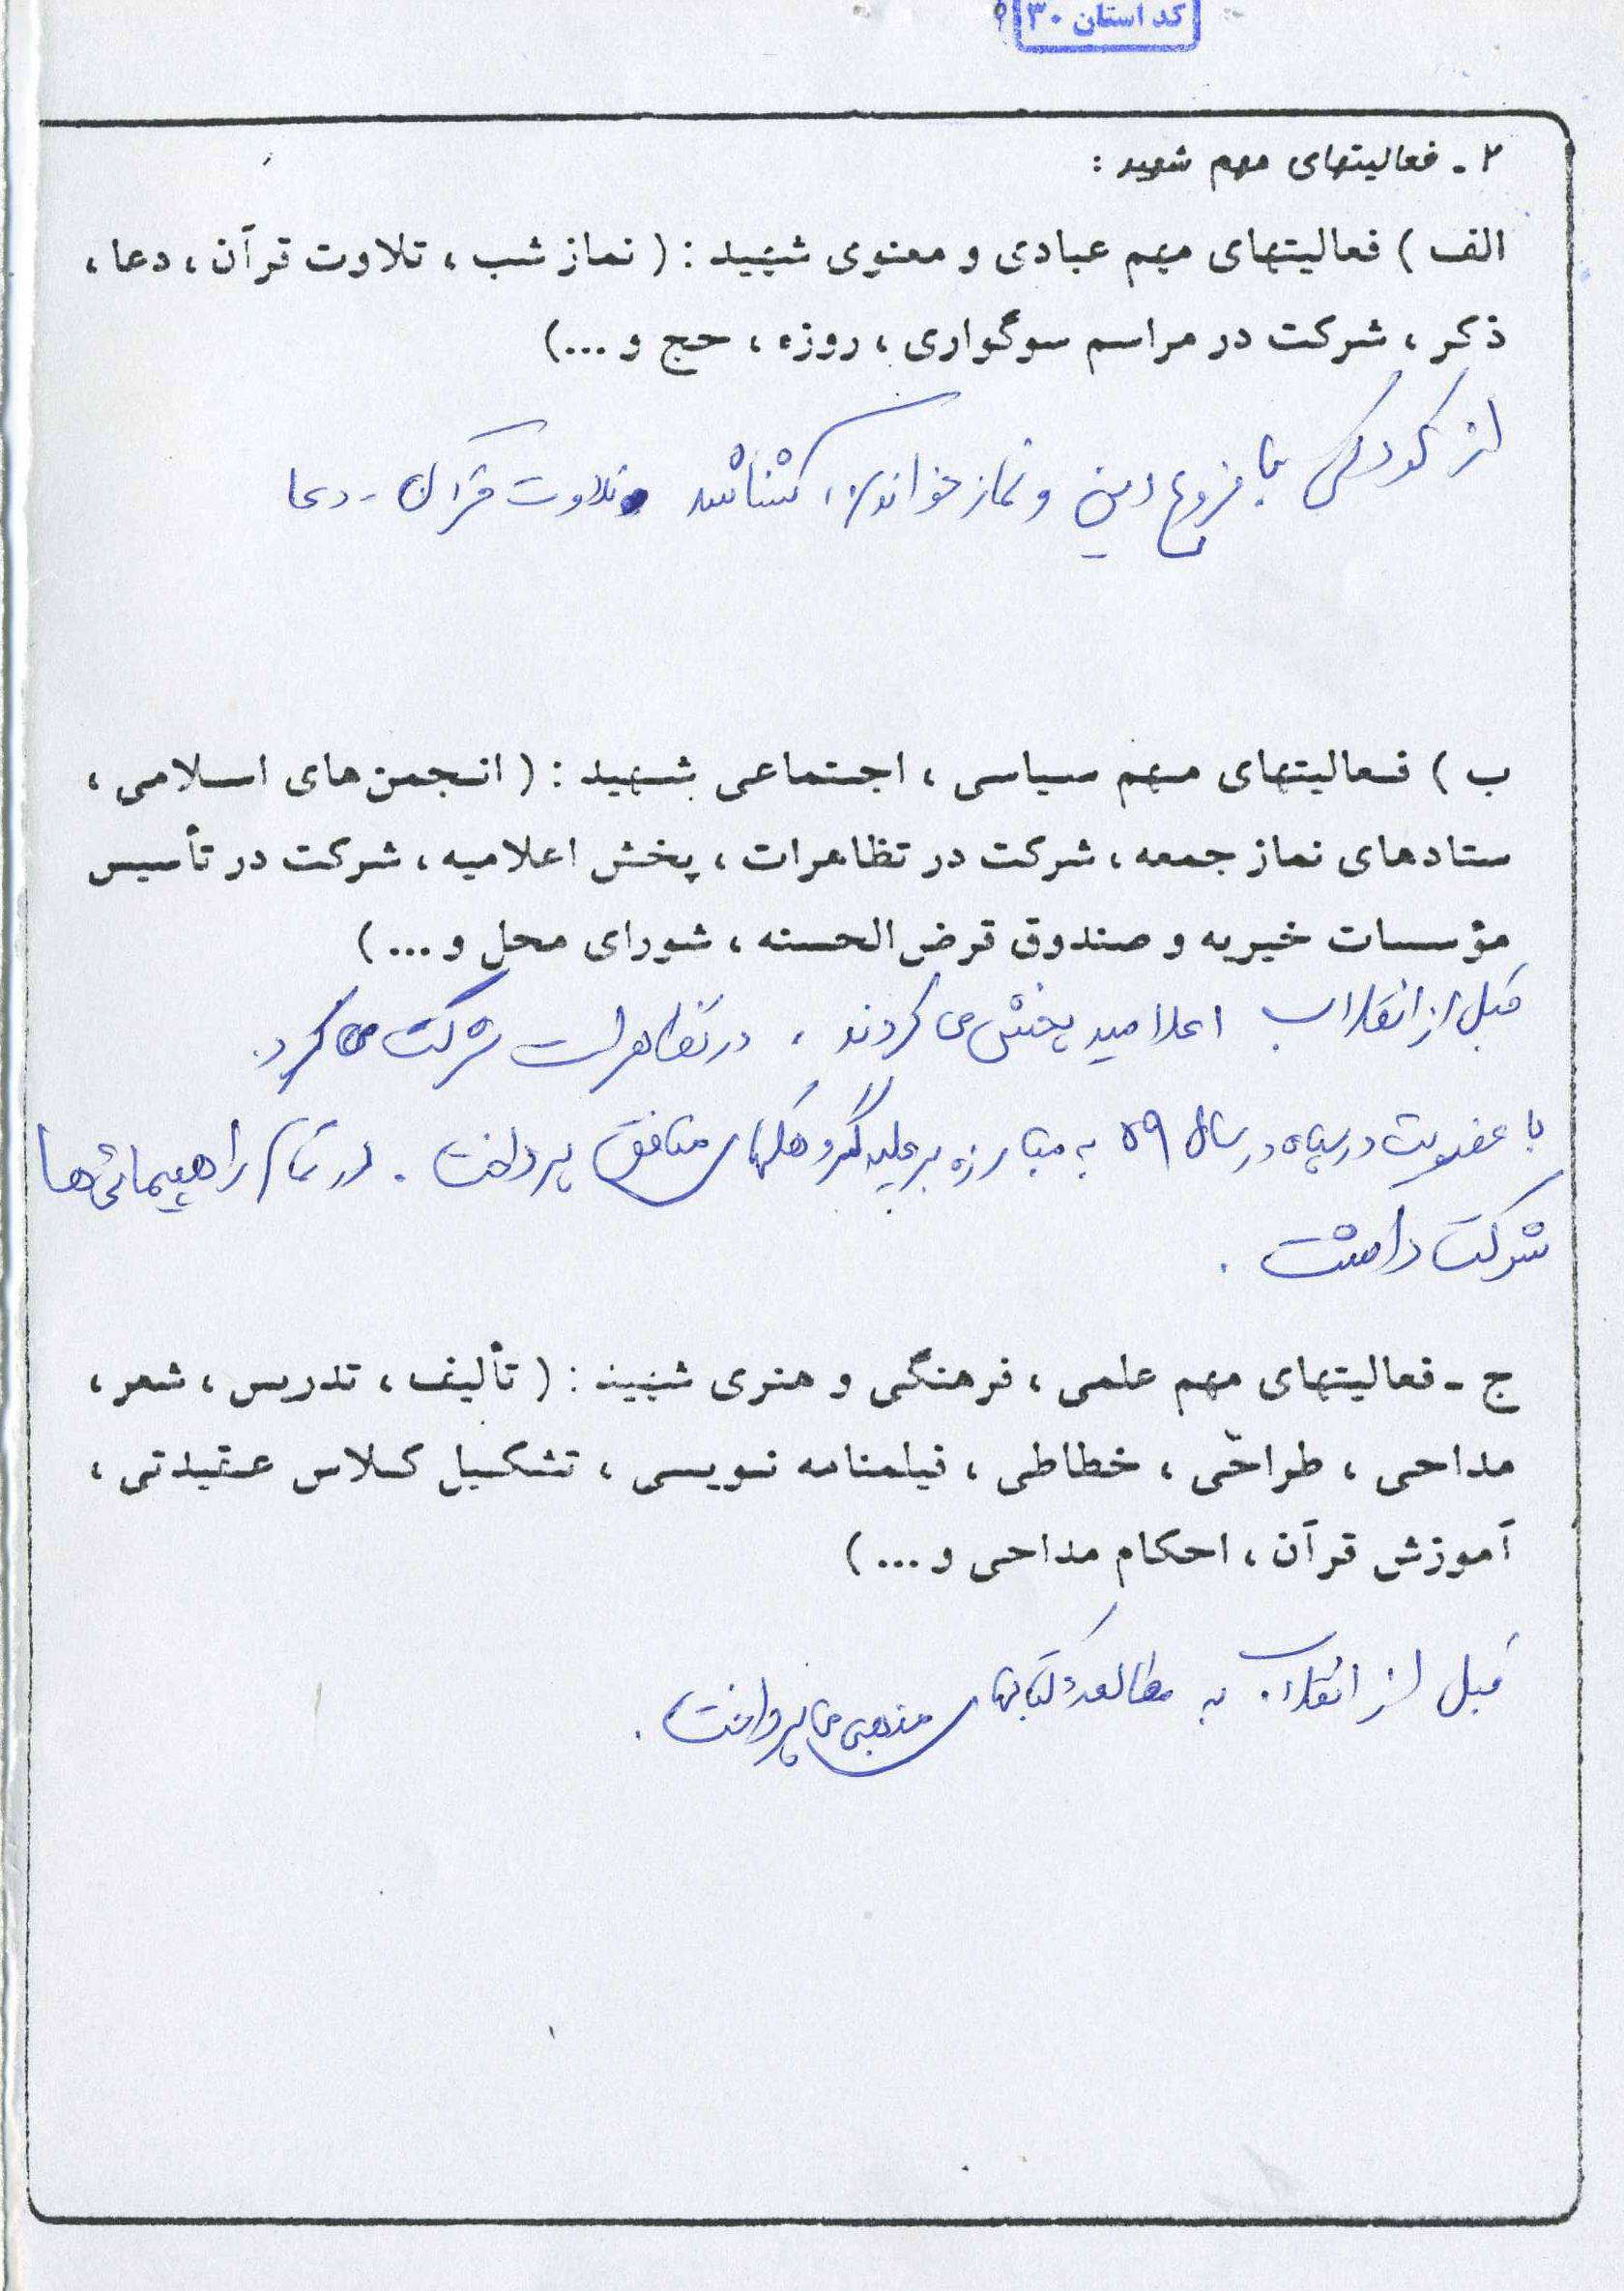 کد استان ۳۰
۲ - فعالیتهای مهم شهید :
الف ) فعالیتهای مهم عبادی و معنوی شهید : ( نماز شب ، تلاوت قرآن ، دعا ،
ذکر ، شرکت در مراسم سوگواری ، روزه ، حج و ...)
از کودکی با فروع دین و نماز خواندن آشنا شد و تلاوت قرآن - دعا
ب ) فعالیتهای مهم سیاسی ، اجتماعی شهید : ( انجمن های اسلامی ،
ستادهای نماز جمعه ، شرکت در تظاهرات ، پخش اعلامیه ، شرکت در تأسیس
مؤسسات خیریه و صندوق قرض الحسنه ، شورای محل و ... )
قبل از انقلاب اعلامیه پخش می کردند ، در تظاهرات شرکت می کرد .
با عضویت در سپاه در سال ۵۹ به مبارزه بر علیه گروهکهای منافق پرداخت . در تمام راهپیمائی ها
شرکت داشت .
ج - فعالیتهای مهم علمی ، فرهنگی و هنری شهید : ( تألیف ، تدریس ، شعر ،
مداحی ، طراحی ، خطاطی ، فیلمنامه نویسی ، تشکیل کلاس عقیدتی ،
آموزش قرآن ، احکام مداحی و ... )
قبل از انقلاب به مطالعه کتابهای مذهبی می پرداخت .